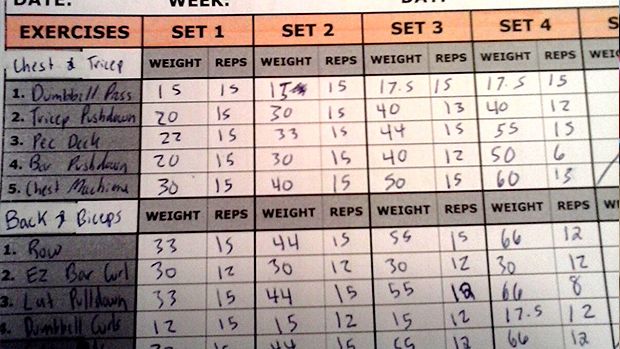 DATE: WEEK: DAY:
EXERCISES SET 1 SET 2 SET 3 SET 4 S
Chest & Tricep WEIGHT REPS WEIGHT REPS WEIGHT REPS WEIGHT REPS WEIG
1. Dumbbell Pass 15 15 15 15 17.5 15 17.5 15
2. Tricep Pushdown 20 15 30 15 40 13 40 12
3. Pec Deck 22 15 33 15 44 15 55 15
4. Bar Pushdown 20 15 30 15 40 12 50 6
5. Chest Machine 30 15 40 15 50 15 60 13
Back & Biceps WEIGHT REPS WEIGHT REPS WEIGHT REPS WEIGHT REPS WE
1. Row 33 15 44 15 55 15 66 12
2. EZ Bar Curl 30 12 30 12 30 12 30 12
3. Lat Pulldown 33 15 44 15 55 12 66 8
4. Dumbbell Curls 12 15 15 12 15 12 17.5 12
15 44 15 55 12 66 12